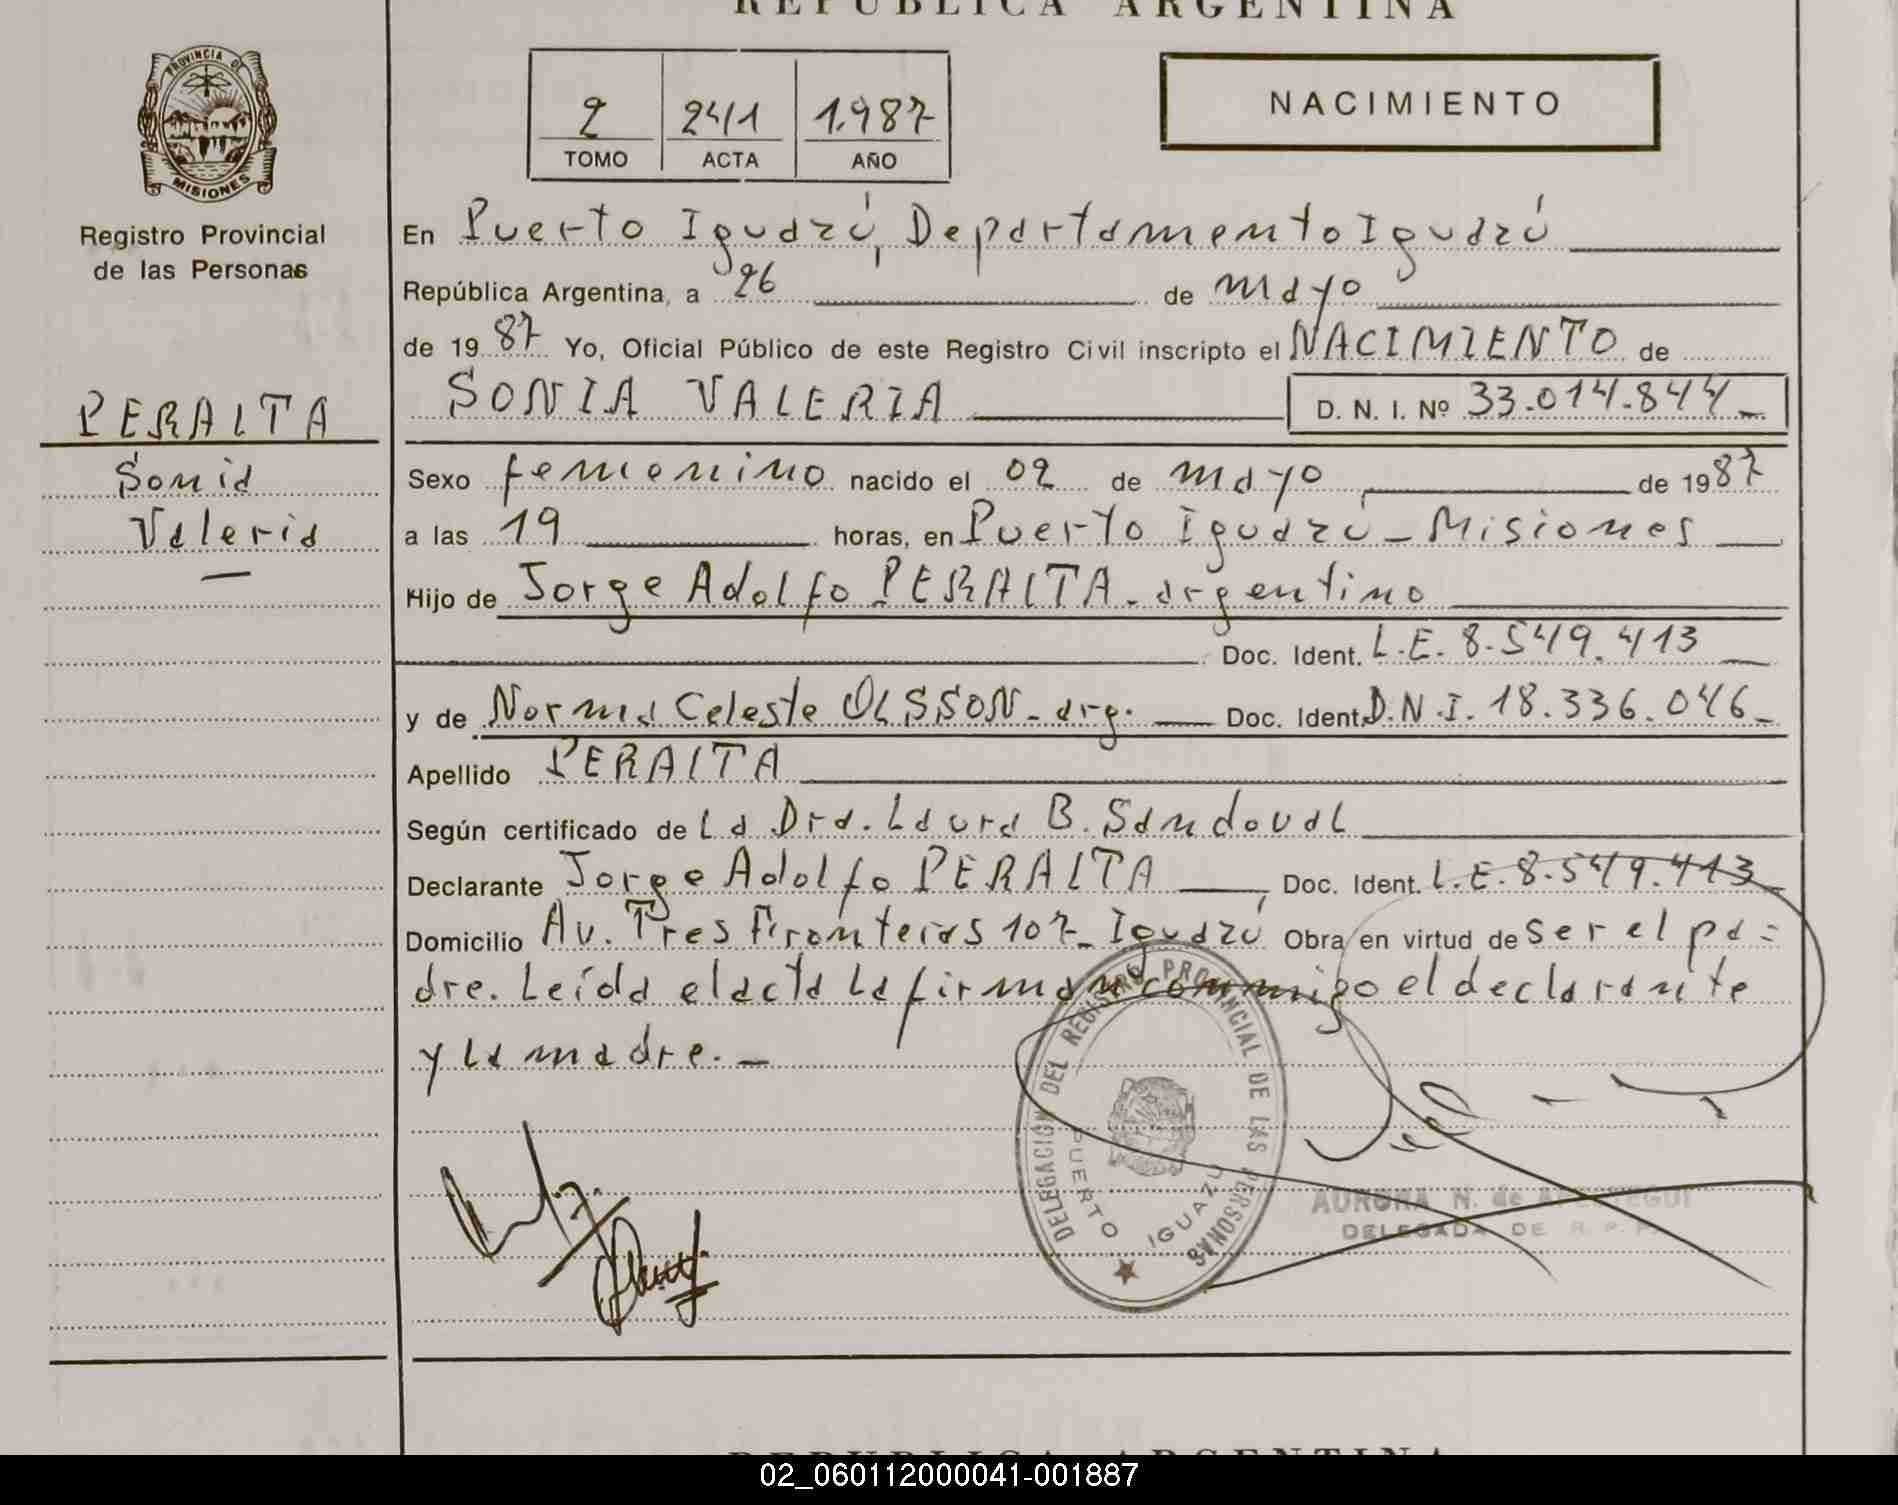 REPUBLICA ARGENTINA
PROVINCIA DE
MISIONES
Registro Provincial
de las Personas
2 241 1.987
TOMO ACTA AÑO
NACIMIENTO
En Puerto Iguazú, Departamento Iguazú
República Argentina, a 26 de mayo
de 1987 Yo, Oficial Público de este Registro Civil inscripto el NACIMIENTO de
SONIA VALERIA D. N. I. Nº 33.014.844
PERALTA
Sonia
Valeria
Sexo femenino nacido el 02 de mayo de 1987
a las 19 horas, en Puerto Iguazú - Misiones
Hijo de Jorge Adolfo PERALTA - argentino
Doc. Ident. L.E. 8.549.413
y de Norma Celeste OLSSON - arg. Doc. Ident. D.N.I. 18.336.046
Apellido PERALTA
Según certificado de La Dra. Laura B. Sandoval
Declarante Jorge Adolfo PERALTA Doc. Ident. L.E. 8.549.413
Domicilio Av. Tres Fronteras 107 - Iguazú Obra en virtud de ser el pa=
dre. Leída el acta la firman conmigo el declarante
y la madre. -
DELEGACION DEL REGISTRO PROVINCIAL DE LAS PERSONAS
PUERTO IGUAZU
AURORA N. de
DELEGADA DE R. P. P.
REPUBLICA ARGENTINA
02_060112000041-001887